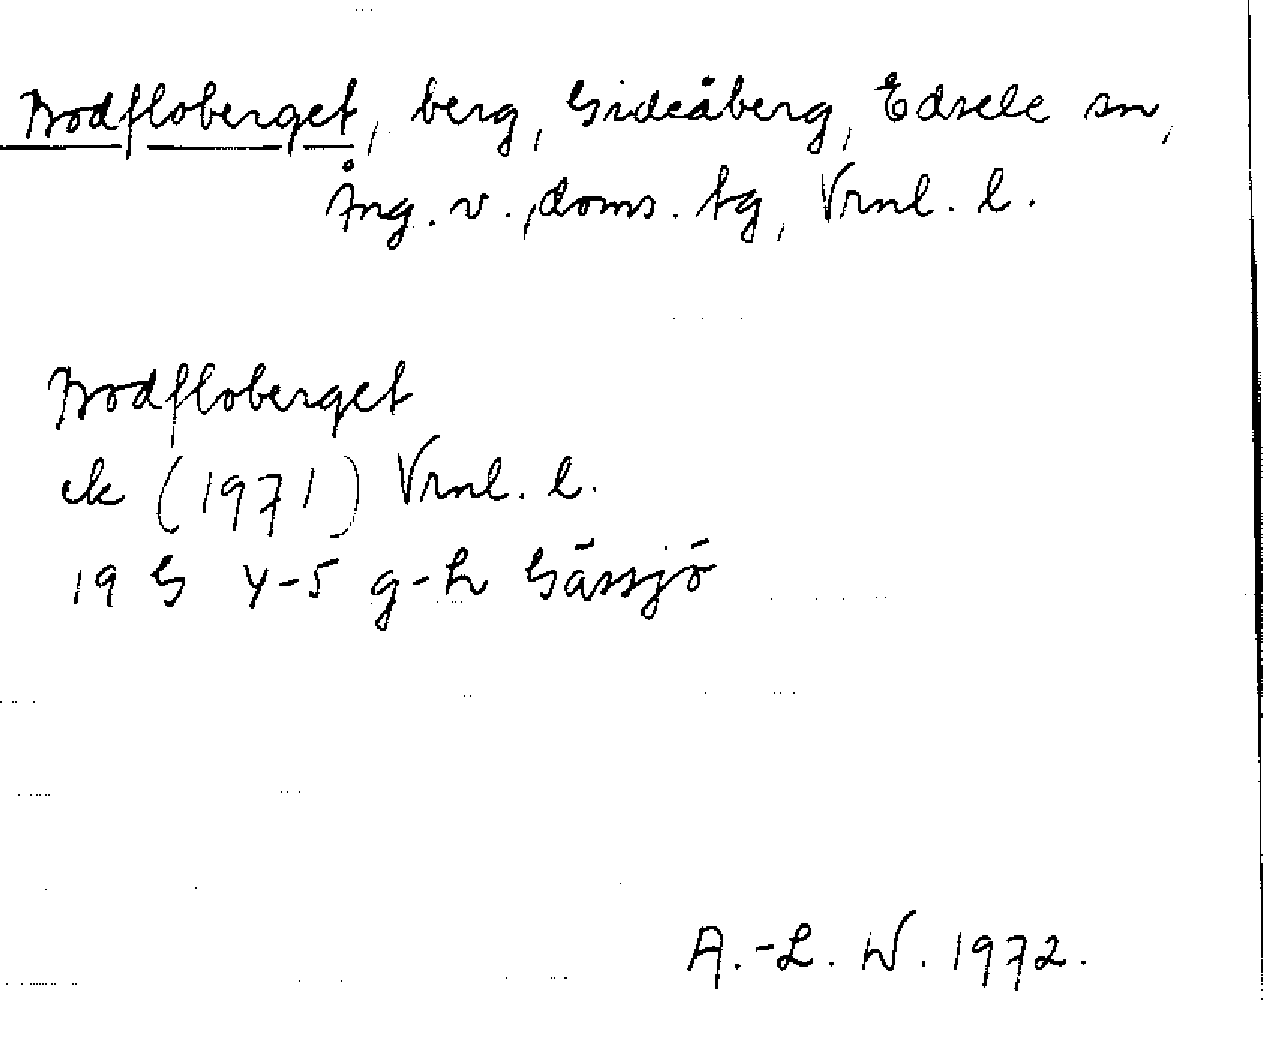 Bodfloberget, berg, Gideåberg, Edsele sn,
Ång. v., doms. tg, Vrnl. l.
Bodfloberget
ek (1971) Vrnl. l.
19 G 4-5 g-h Gässjö
A.-L. W. 1972.